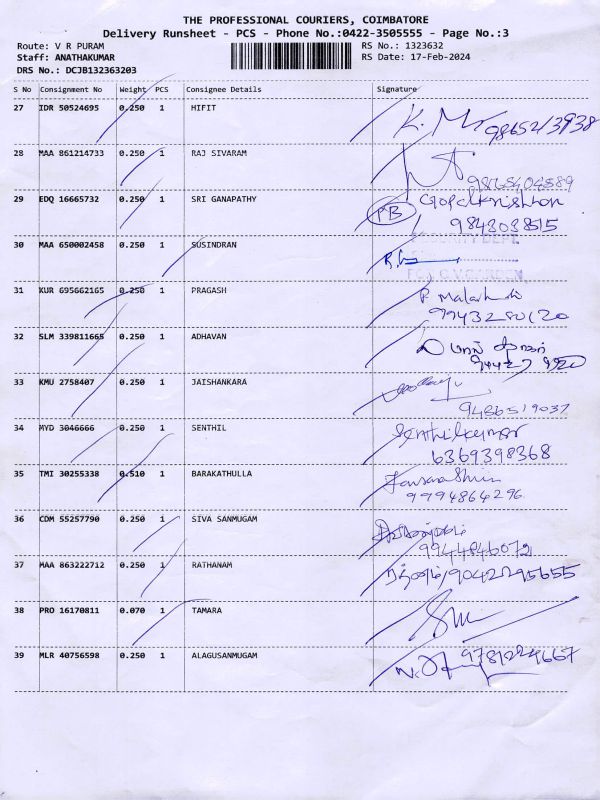 THE PROFESSIONAL COURIERS, COIMBATORE
Delivery Runsheet - PCS - Phone No.:0422-3505555 - Page No.:3
Route: V R PURAM
RS No.: 1323632
Staff: ANATHAKUMAR
RS Date: 17-Feb-2024
DRS No.: DCJB132363203
S No Consignment No Weight PCS Consignee Details Signature
27 IDR 50524695 0.250 1 HIFIT
28 MAA 861214733 0.250 1 RAJ SIVARAM
29 EDQ 16665732 0.250 1 SRI GANAPATHY PB Gopalkrishnan
9843038515
30 MAA 650002458 0.250 1 SUSINDRAN
SECURITY DEPT
31 KUR 695662165 0.250 1 PRAGASH
32 SLM 339811665 0.250 1 ADHAVAN
33 KMU 2758407 0.250 1 JAISHANKARA
9486519037
34 MYD 3046666 0.250 1 SENTHIL Senthilkumar
6369398368
35 TMI 30255338 0.510 1 BARAKATHULLA
9994864296
36 COM 55257790 0.250 1 SIVA SANMUGAM
9944846072
37 MAA 863222712 0.250 1 RATHANAM
38 PRO 16170811 0.070 1 TAMARA
39 MLR 40756598 0.250 1 ALAGUSANMUGAM